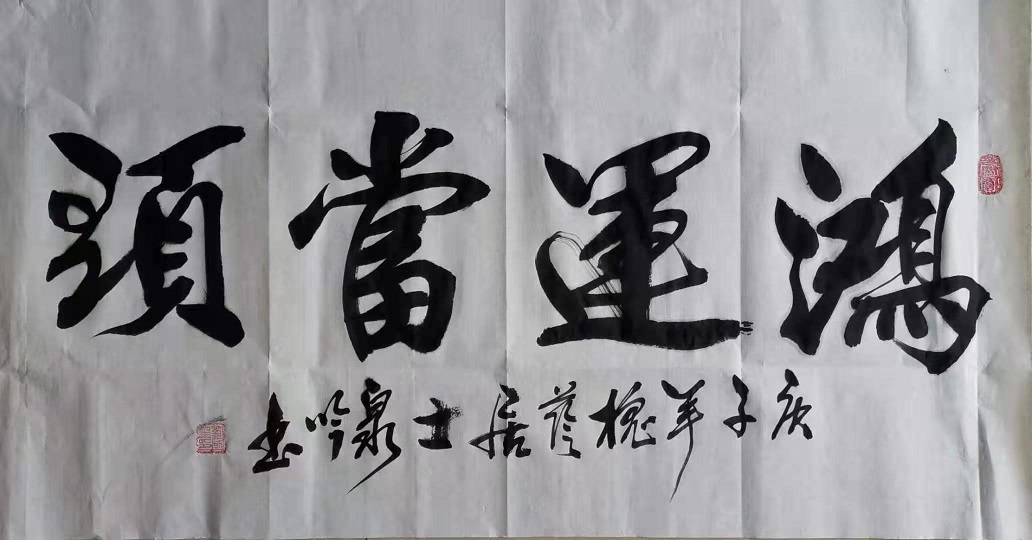 鴻運當頭
庚子年槐蔭居士泉吟書